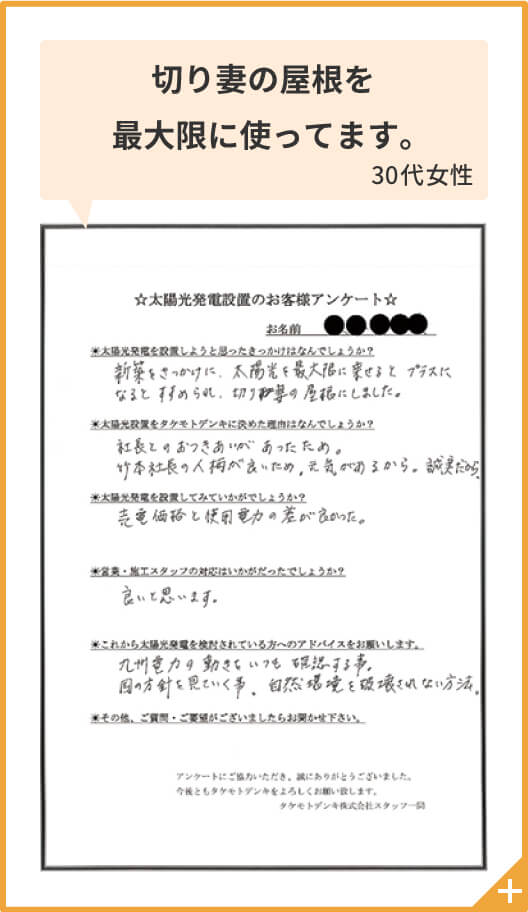 切り妻の屋根を
最大限に使ってます。
30代女性
☆太陽光発電設置のお客様アンケート☆
お名前
＊太陽光発電を設置しようと思ったきっかけはなんでしょうか？
新築をきっかけに、太陽光を最大限に乗せると プラスに
なると すすめられ、切り妻の屋根にしました。
＊太陽光設置をタケモトデンキに決めた理由はなんでしょうか？
社長とのおつきあいが あったため。
竹本社長の人柄が良いため,元気があるから。誠実だから、
＊太陽光発電を設置してみていかがでしょうか？
売電価格と使用電力の差が良かった。
＊営業・施工スタッフの対応はいかがだったでしょうか？
良いと思います。
＊これから太陽光発電を検討されている方へのアドバイスをお願いします。
九州電力の動きをいつも 確認する事。
国の方針を見ていく事、自然環境を破壊されない方法。
＊その他、ご質問・ご要望がございましたらお聞かせ下さい。
アンケートにご協力いただき、誠にありがとうございました。
今後ともタケモトデンキをよろしくお願い致します。
タケモトデンキ株式会社スタッフ一同